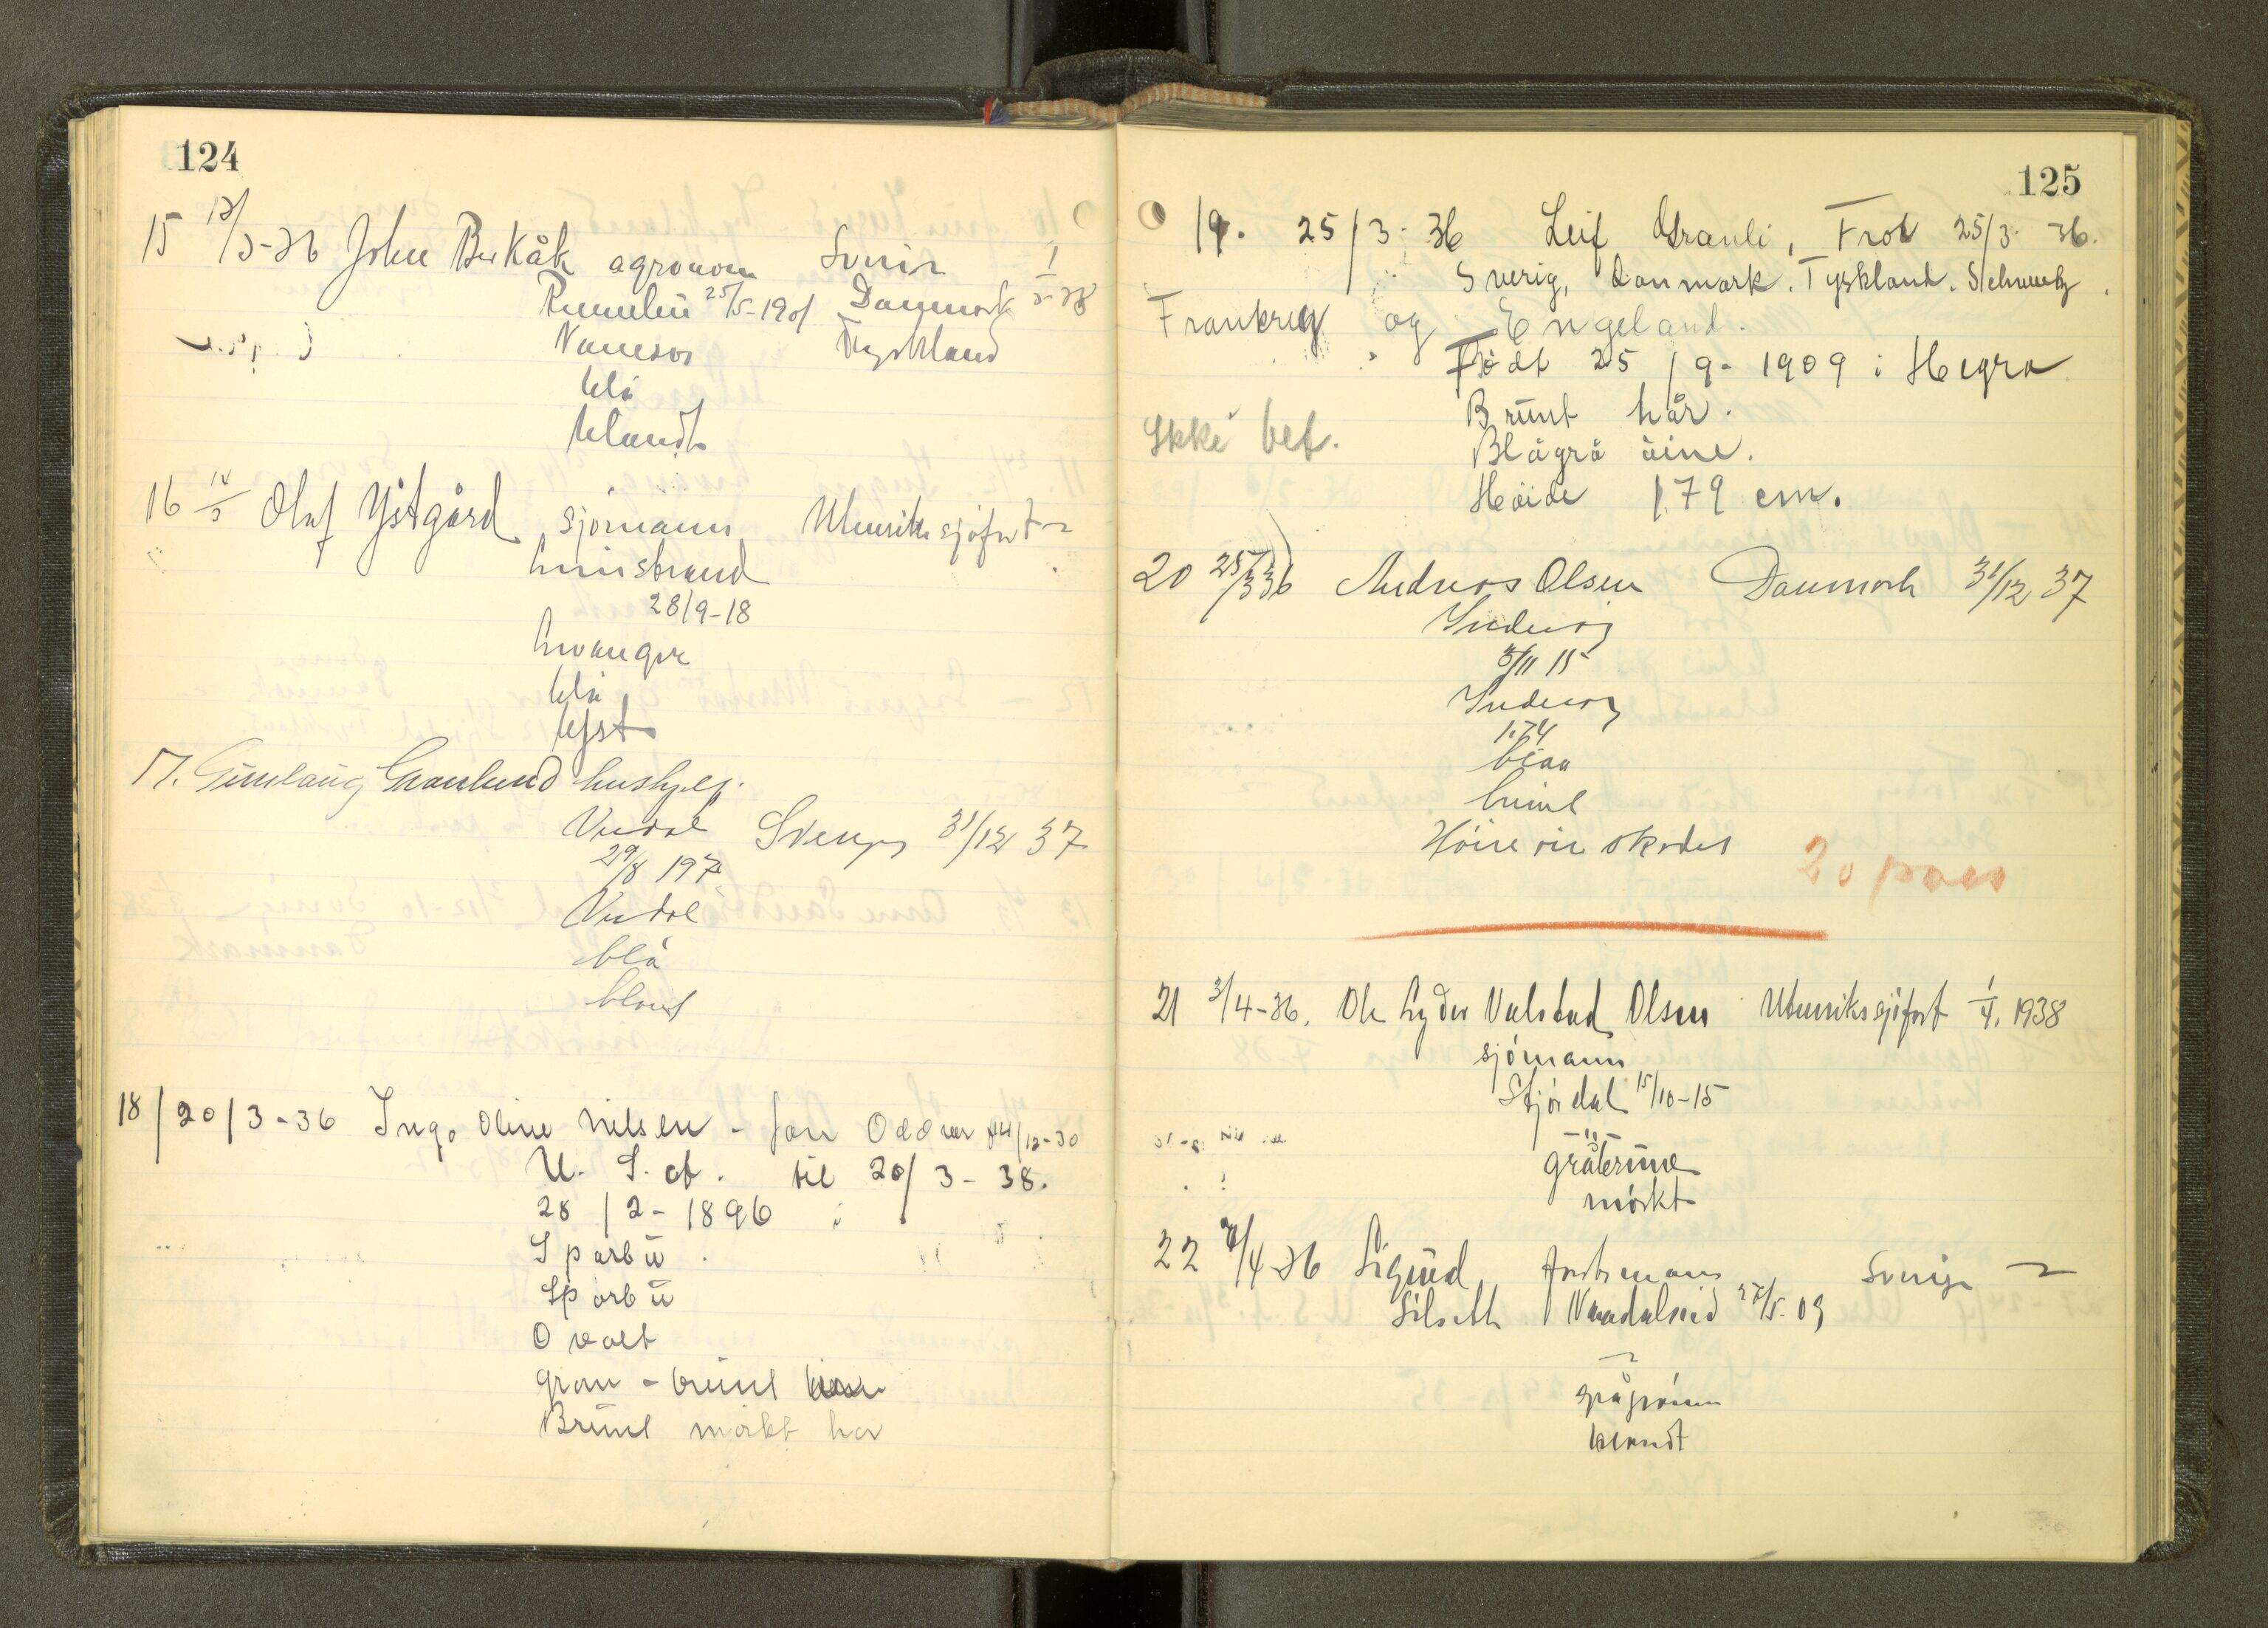 124
15 12/3-36 John Berkåk agronom Sverig 1/3-38
25/5-1901 Danmark
Namsos Tyskland
blå
blandt
16 14/3 Olaf Ystgård sjømann Utenrikssjøfart
28/9-18
Levanger
blå
lyst
17. Gunlaug Granlund hushjelp.
Verdal Sverige 31/12 37
29/8 197
Verdal
blå
blont
18/20/3-36 Inga Oline Nilsen - Jan Oddvar 14/12-30
U. S. af. til 20/3-38.
28/2-1896
Sparbu
Sparbu
Ovalt
grau-brunt
Brunt mørkt hår
125
19. 25/3-36 Leif Granli, Frol 25/3-36.
Sverig, Danmark. Tyskland. Schweitz.
Frankrig og Engeland.
Født 25/9-1909 i Hegra
Brunt hår.
Ikke bet. Blågrå öine.
Høide 179 cm.
20 25/3 36 Andreas Olsen Danmark 31/12 37
Inderøy
5/11 15
Inderøy
1.74
blaa
brunt
Höire öie skadet
20 pass
21 3/4-36. Ole Lyder Valstad Olsen Utenrikssjøfart 1/4. 1938
sjömann
Stjørdal 15/10-15
-"-
gråbrune
mørkt
22 /4-36 Sigurd Sverige
27/5-09
blondt